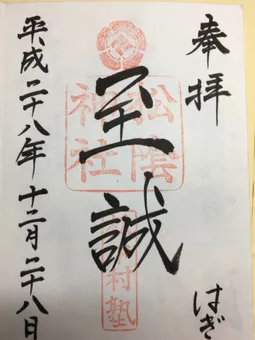 奉拝
はぎ
松陰
神社
至誠
村塾
平成二十八年十二月二十八日